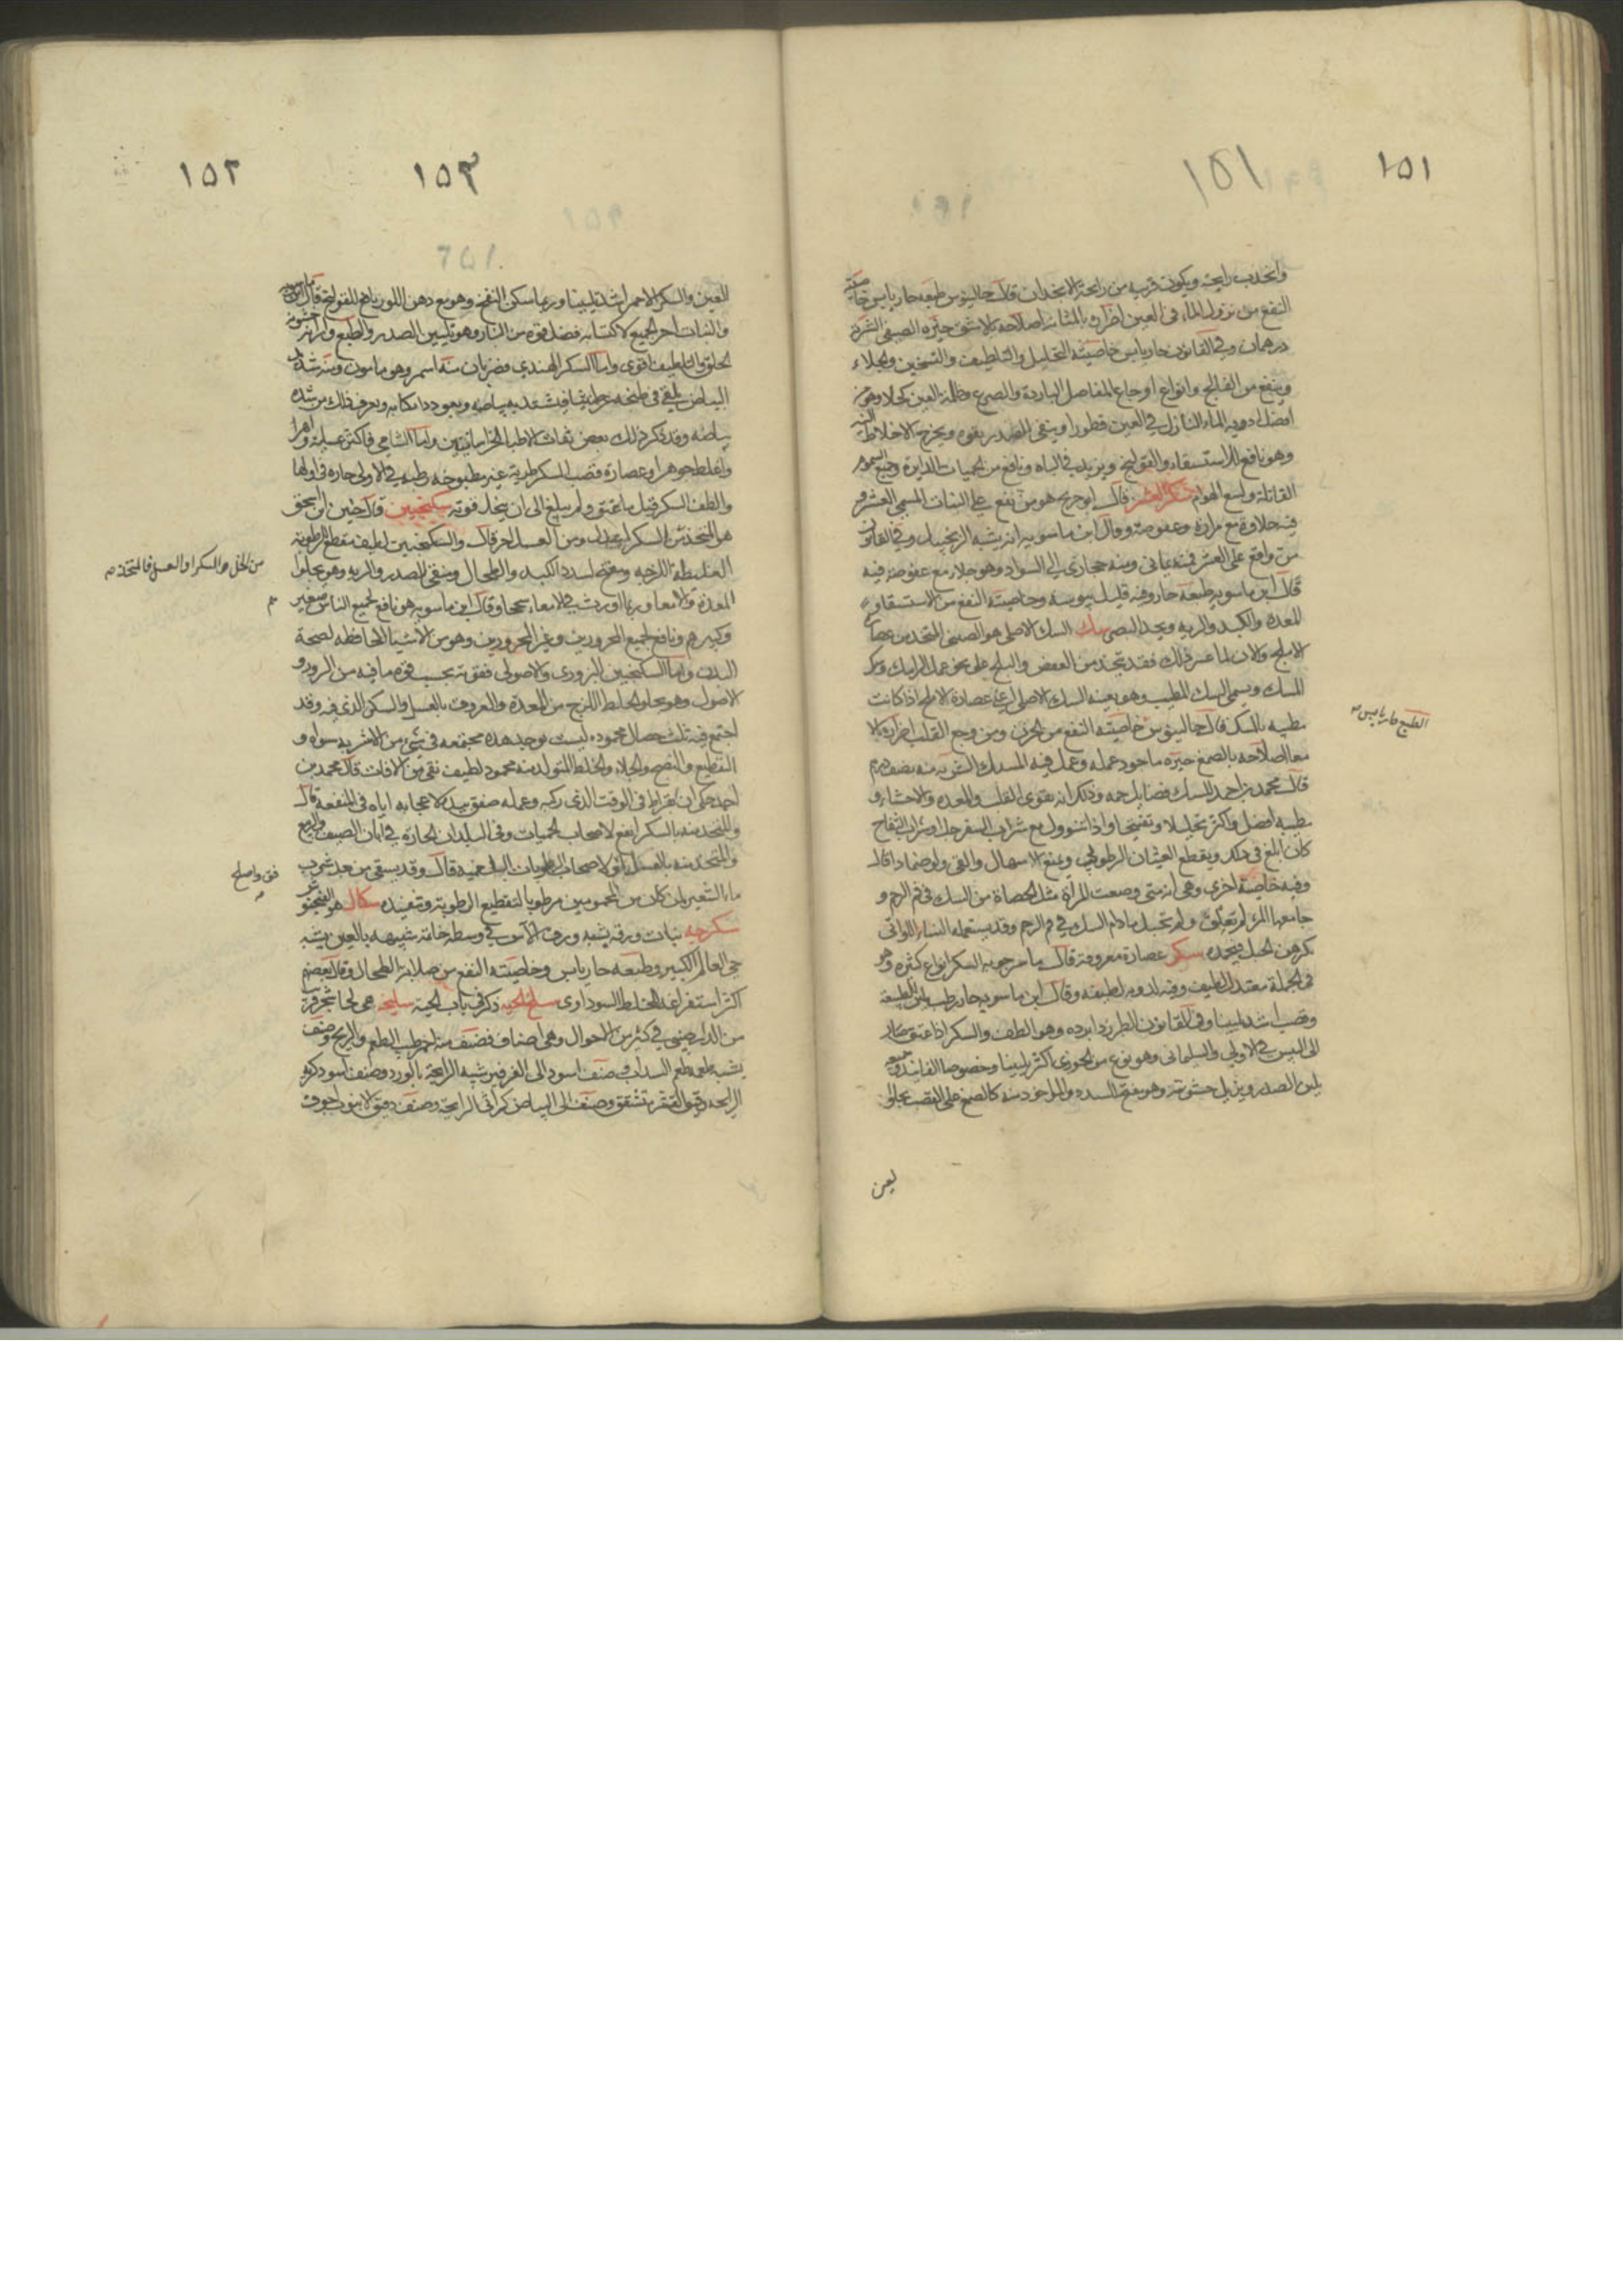 ١٥١
١٥١
وانخذب رايحته ويكون قريبه من رايحة الانجدان قال جالينوس طبعه حار يابس خاصيته
النفع من نزول الماء في العين اضراره بالمثانة اصلاحه بالاشق خيره الصيفي الشربة
درهمان وفي القانون حار يابس خاصيته التحليل والتلطيف والتسخين والجلاء
وينفع من الفالج وانواع اوجاع المفاصل الباردة والصرع وظلمة العين كحلا وهو من
افضل ادويه الماء النازل في العين قطورا وينقى الصدر بقوه ويخرج الاخلاط
وهو نافع للاستسقاء والقولنج ويزيد في الباه ونافع من الحميات الدايرة وجميع السموم
القاتلة ولسع الهوام سكر العشر قال ابو جريج هو من يقع على النبات المسمى العشر و
فيه حلاوة مع مرارة وعفوصة وقال ابن ماسويه انه يشبه الزنجبيل وفي القانون
من واقع على العشر فمنه يماني ومنه حجازي الى السواد وهو جلاء مع عفوصة فيه
قال ابن ماسويه طبعه حار وفيه قليل يبوسه وخاصيته النفع من الاستسقاء و
المعده والكبد والريه ويحد البصر سك السك الاصلي هو الصيني المتخذ من عصارة
الاملج والان لما عسر ذلك فقد يتخذ من العفص والبلح على نحو عمل الرامك
المسك ويسمى السك المطيب وهو بعينه السك الاصلي اعني عصارة الاملج اذا كانت
مطيبه بالمسك قال جالينوس خاصيته النفع من الحزن ومن وجع القلب اضراره بالا
معا اصلاحه بالصمغ خيره ما جود عمله وعمل فيه المسك الشربة منه نصف درهم
قال محمد بن احمد للسك فضايل جمه وذلك انه يقوى القلب والمعده والاحشاء و
مطيبه افضل واكثر تحليلا وتفتيحا واذا تنوول مع شراب السفرجل او شراب التفاح
كان ابلغ في ذلك ويقطع الغثيان الرطوبي ويمنع الاسهال والقى ولو ضمادا قال
وفيه خاصية اخرى وهي انه متى وضعت المرأة مثل الحصاة من السك في فم الرحم و
جامعها المرء لم تعلق ولم تحبل ما دام السك في فم الرحم وقد يستعمله النساء اللواتي
يكرهن الحبل فيحمدنه سكر عصارة معروفة قال ماسرجويه السكر انواع كثيره وهو
في الجملة معتدل لطيف وفيه لدونه لطيفه وقال ابن ماسويه حار رطب يلين الطبيعة
وقصبه اشد تليينا وفي القانون الطبرزد ابرده وهو الطف والسكر اذا عتق صار
الى اليبس في الاولى والسليماني وهو نوع من الخوزي اكثر تليينا وخصوصا الفانيذ وجميعه
يلين الصدر ويزيل خشونته وهو يفتح السدد والماخوذ منه كالصمغ على القصب يجلو
لعين
الطبع حار يابس
١٥٢
١٥٣
العين والسكر الاحمر اشد تليينا وربما سكن النفخ وهو مع دهن اللوز نافع للقولنج قال
والنبات احر الجميع لاكتسابه فضل قوه من النار وهو تليين الصدر والطبع وازالة خشونة
الحلق والتلطيف اقوى واما السكر الهندي فضربان منه اسمر وهو مامون ومنه شديد
البياض يلقى في طبخه خرط يشا فيشتد به بياضه ويعود ويعرف ذلك من شدة
بياضه وقد ذكر ذلك بعض ثقات الاطبا الخراسانيين واما الشامي فاكثر عسلية
واغلظ جوهرا وعصارة قصب السكر طرية غير مطبوخه رطبه في الاولى حاره في اولها
والطف السكر قبل ما عتق ولم يبلغ الى ان ينحل قوته سكنجبين قال حنين بن اسحق
هو المتخذ من السكر اعدل ومن العسل احر قال والسكنجبين لطيف مقطع للرطوبة
الغليظه اللزجه ومفتح لسدد الكبد والطحال ومنقى الصدر والريه وهو يجلوا
المعدة والامعا وربما اورث في الامعاء سحجا وقال ابن ماسويه هو نافع لجميع الناس صغيرهم
وكبيرهم ونافع لجميع المحرورين وغير المحرورين وهو من الاشيا الحافظه لصحة
البدن واما السكنجبين البزوري والاصولي فقوته بحسب قوه ما فيه من البزور و
الاصول وهو يجلو الخلط اللزج من المعدة والمعروف بالعسل والسكر الذي فيه وقد
اجتمع فيه ثلث خصال محموده ليست توجد هذه مجتمعه في شئ من الاشربه سواه و
التقطيع والنضج والجلاء والخلط المتولد منه محمود لطيف نقى من الافات قال محمد بن
احمد حكى ان بقراط في الوقت الذي ركبه وعمله صفق بيديه لاعجابه اياه في المنفعة قال
والمتخذ منه بالسكر انفع لاصحاب الحميات وفي البلدان الحاره في ابان الصيف والربيع
والمتخذ منه بالعسل اوفق لاصحاب الرطوبات البلغميه قال وقد يسقى من بعد شرب
ماء الشعير لمن كان من المحمومين مرطوبا لتقطيع الرطوبة وتنفيذه سكال هو الفنجنو
سكرجه نبات ورقه يشبه ورق الآس في وسطه خاتمة شبيهه بالعين يشبه
حي العالم الكبير وطبعه حار يابس وخاصيته النفع من صلابة الطحال وقال بعضهم
اكثر استفراغه للخلط السوداوى سلخ الحيه ذكر في باب الحية سليخه هي لحا شجرة
من الدارصيني في كثير من الاحوال وهي اصناف فصنف منه احمر طيب الطعم والريح وصنف
يشبه طعمه طعم السداب وصنف اسود الى الفرفير شبيه الرايحة بالورد وصنف اسود كريه
الرايحه رقيق القشر متشقق وصنف الى البياض كراثى الرايحة وصنف دقيق الانبوب اجوف
من الخل والسكر او العسل فالمتخذ